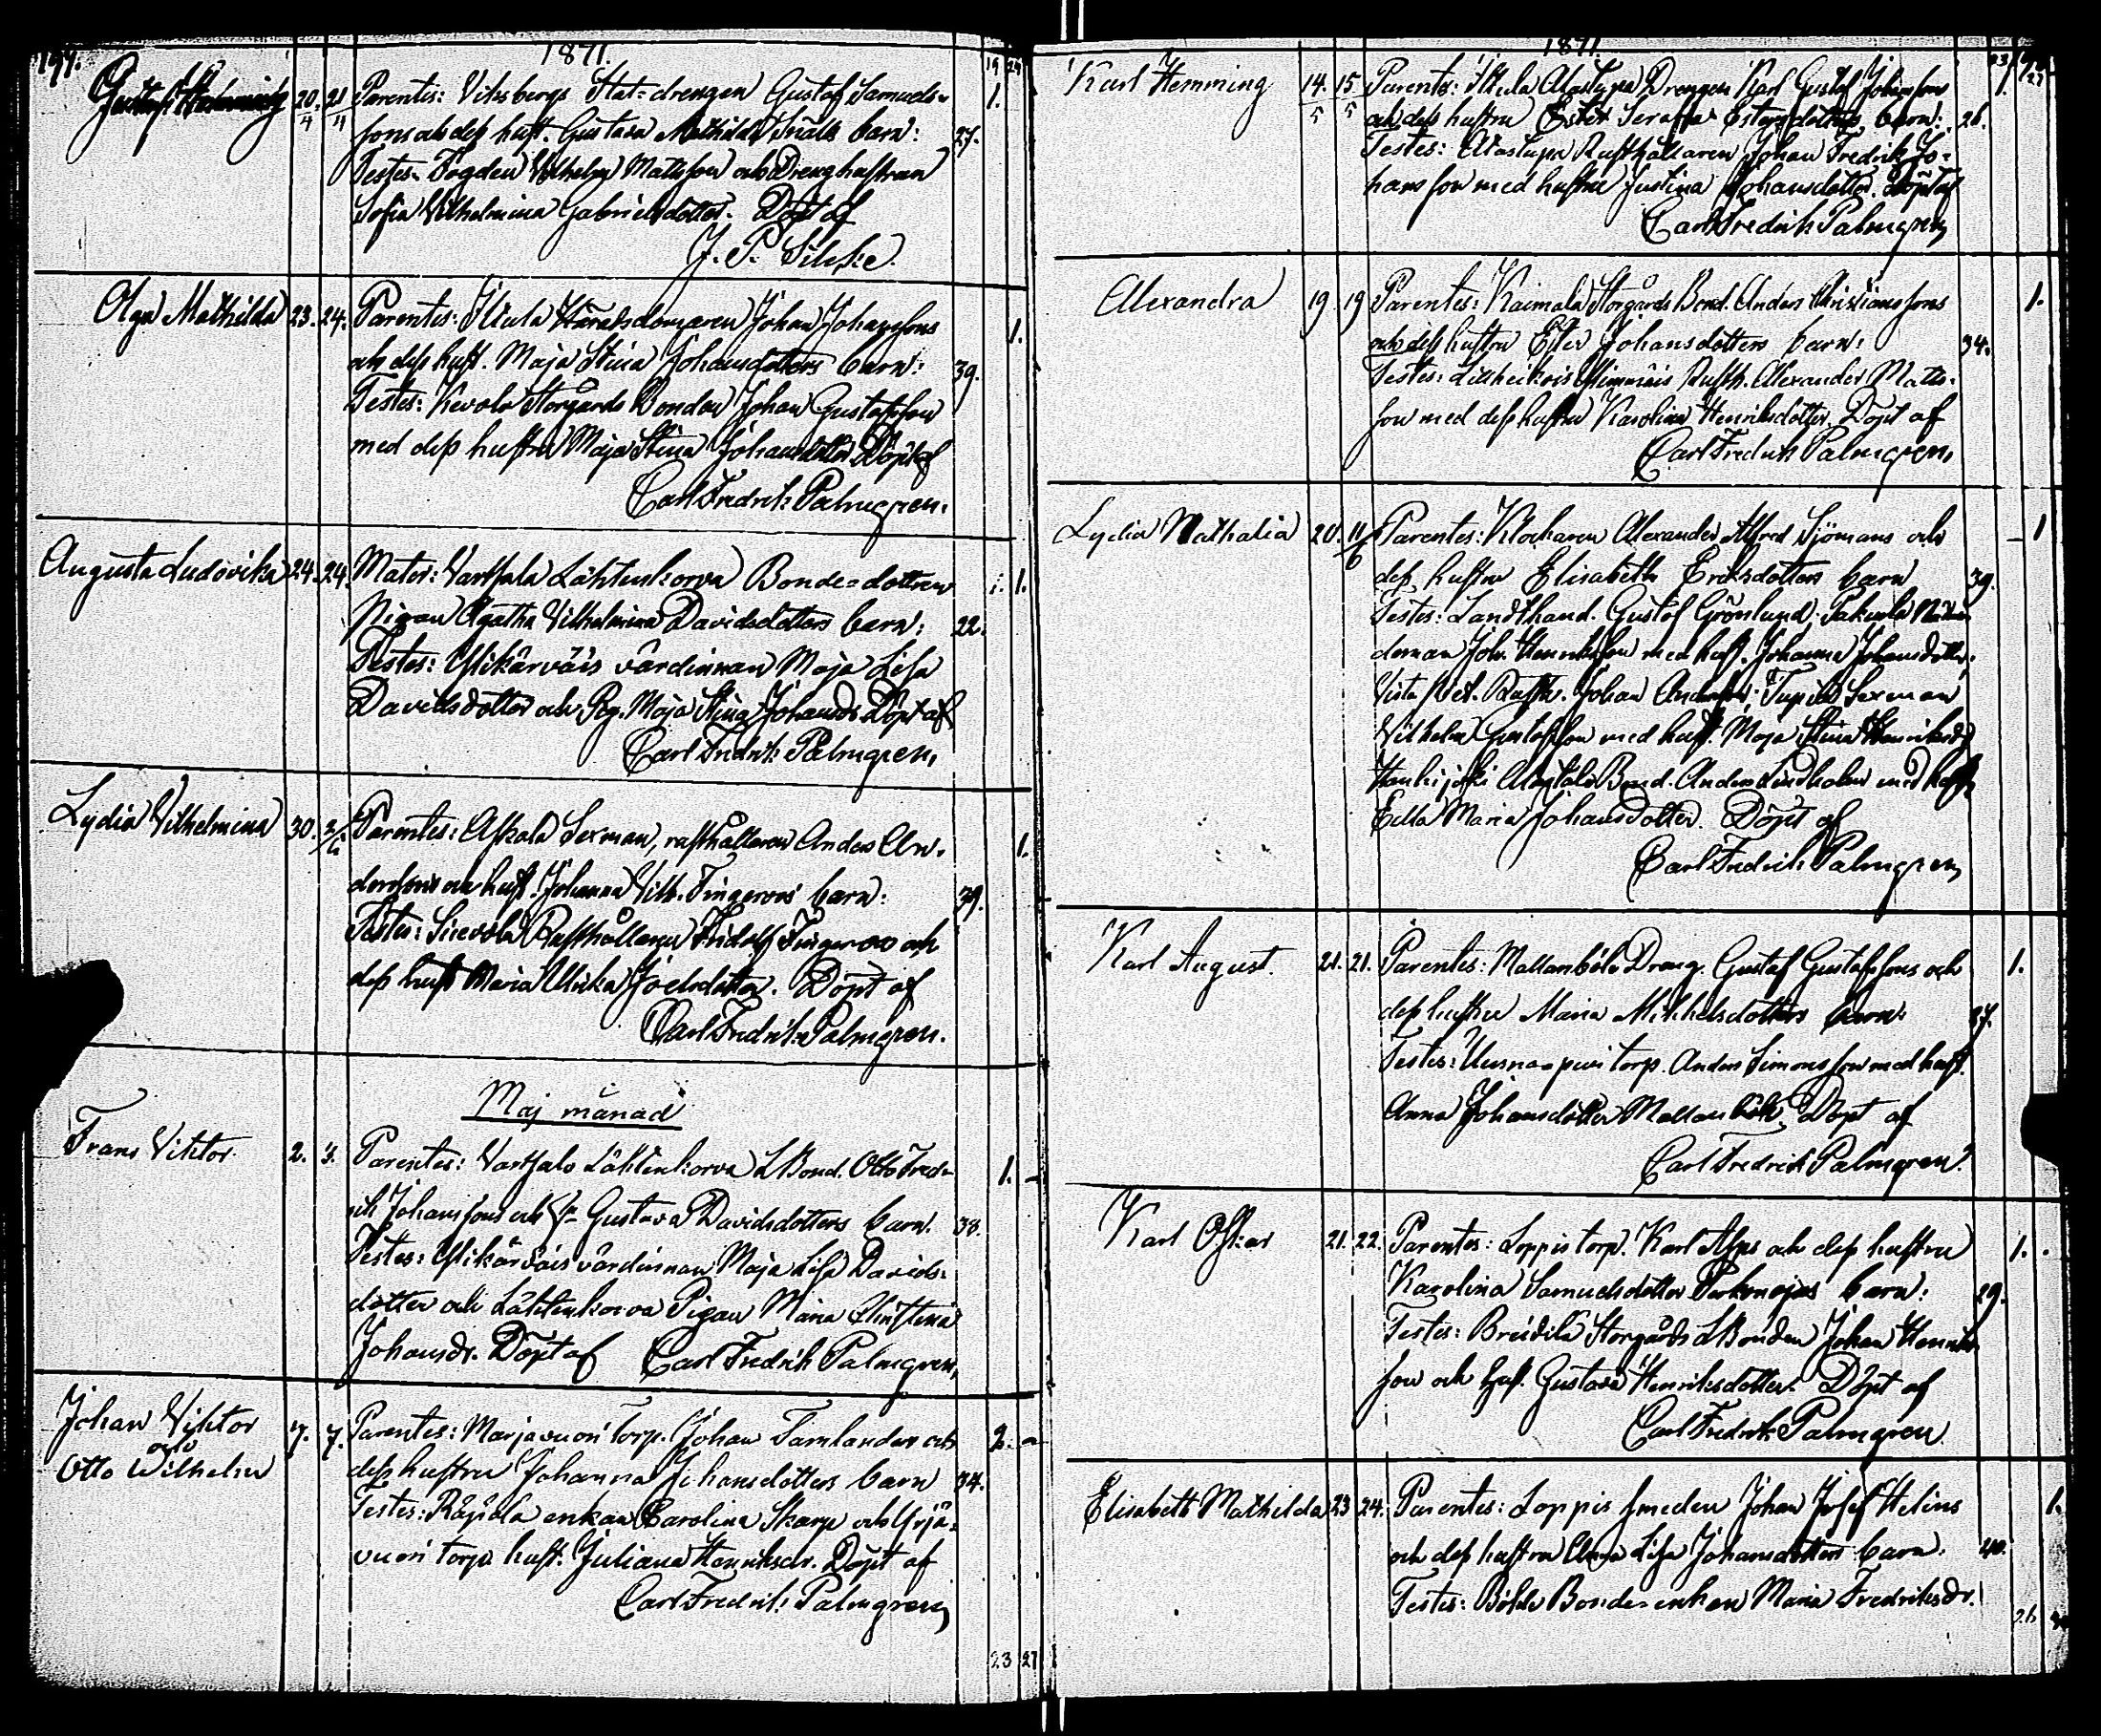 197.
1871.
19 24
Gustaf Hemming 20/4 21/4 Parentes: Viksbergs Stat-drengen Gustaf Samuels- 1.
sons och deß hust. Gustava Mathilda Snälls barn: 27.
Testes: Fogden Vilhelm Mattsson och Drenghustrun
Sofia Vilhelmina Gabrielsdotter. Döpt af
J. P.
Olga Mathilda 23. 24. Parentes: Häradsdomaren Johan Johanssons 1.
och deß hust. Maja Stina Johansdotters barn: 39.
Testes: Kevola Storgårds Bonden Johan Gustafsson
med deß hustru Maja Stina Johansdotter Döpt af
Carl Fredrik Palmgren.
Augusta Ludovika 24. 24. Mater: Vartsala Lähtenkorva Bonde-dottren 1. 1.
Pigan Agatha Vilhelmina Davidsdotters barn: 22.
Testes: värdinnan Maja Lisa
Davidsdotter och Pig. Maja Stina Johansdr. Döpt af
Carl Fredrik Palmgren,
Lydia Vilhelmina 30. 2/5 Parentes: Sexman, rusthållaren Anders An- 1.
derssons och hust. Johanna Vilh. Fingeroos barn: 39.
Testes: Rusthållaren Fridolf Fingeroos och
deß hust Maria Ulrika Joelsdotter. Döpt af
Carl Fredrik Palmgren.
Maj månad
Frans Viktor 2. 3. Parentes: Vartsala Lähtenkorva LBond. Otto Fred- 1.
rik Johanssons och Gustava Davidsdotters barn. 38.
Testes: värdinnan Maja Lisa Davids-
dotter och Lähtenkorva Pigan Maria Christina
Johansdr. Döpt af Carl Fredrik Palmgren,
Johan Viktor 7. 7. Parentes: Marjavuori Torp. Johan Tamlander och 2.
och
Otto Wilhelm deß hustru Johanna Johansdotters barn 34.
Testes: enkan Carolina Skarp och Yrjä-
vuori torp. hust. Juliana Henriksdr. Döpt af
Carl Fredrik Palmgren,
23 27
1871.
23 27
Karl Hemming 14./5 15/5 Parentes: Alastupa Drengen Karl Gustaf Johanssons 1.
och deß hustru Ester Serafia barn: 26.
Testes: Alastupa Rusthållaren Johan Fredrik Jo-
hansson med hustru Justina Johansdotter. Döpt af
Carl Fredrik Palmgren,
Alexandra 19 19 Parentes: Kaimala Storgårds Bond. Anders Christianssons 1.
och deß hustru Ester Johansdotters barn: 34.
Testes: Rusth. Alexander Matts-
son med deß hustru Karolina Henriksdotter. Döpt af
Carl Fredrik Palmgren,
Lydia Nathalia 20. 11/6 Parentes: Klockaren Alexander Alfred Sjömans och 1
deß hustru Elisabeth Eriksdotters barn 39.
Testes: Landthand. Gustaf Grönlund;
deman Joh. Henriksson med hust. Johanna Johansdotter;
Vista Rusth. Johan Andersson; Sexman
Vilhelm Gustafsson med hust. Maja Stina Henriksdr;
Alastalo Bond. Anders Lindholm med hust.
Edla Maria Johansdotter. Döpt af
Carl Fredrik Palmgren,
Karl August. 21. 21. Parentes: Mallanböle Dreng. Gustaf Gustafssons och 1.
deß hustru Maria Mikkelsdotters barn: 37.
Testes: torp. Anders Simonsson med hust.
Anna Johansdotter Döpt af
Carl Fredrik Palmgren.
Karl Oskar 21. 22. Parentes: Loppis torp. Karl Alfs och deß hustru 1.
Karolina Samuelsdotter barn: 29.
Testes: Breidila Storgårds LBonden Johan Henriks-
son och hust. Gustava Henriksdotter. Döpt af
Carl Fredrik Palmgren.
Elisabeth Mathilda 23 24. Parentes: Loppis smeden Johan Josef Helins 1.
och deß hustru Anna Lisa Johansdotters barn: 40.
Testes: Böhle Bonde-enkan Maria Fredriksdr.
26